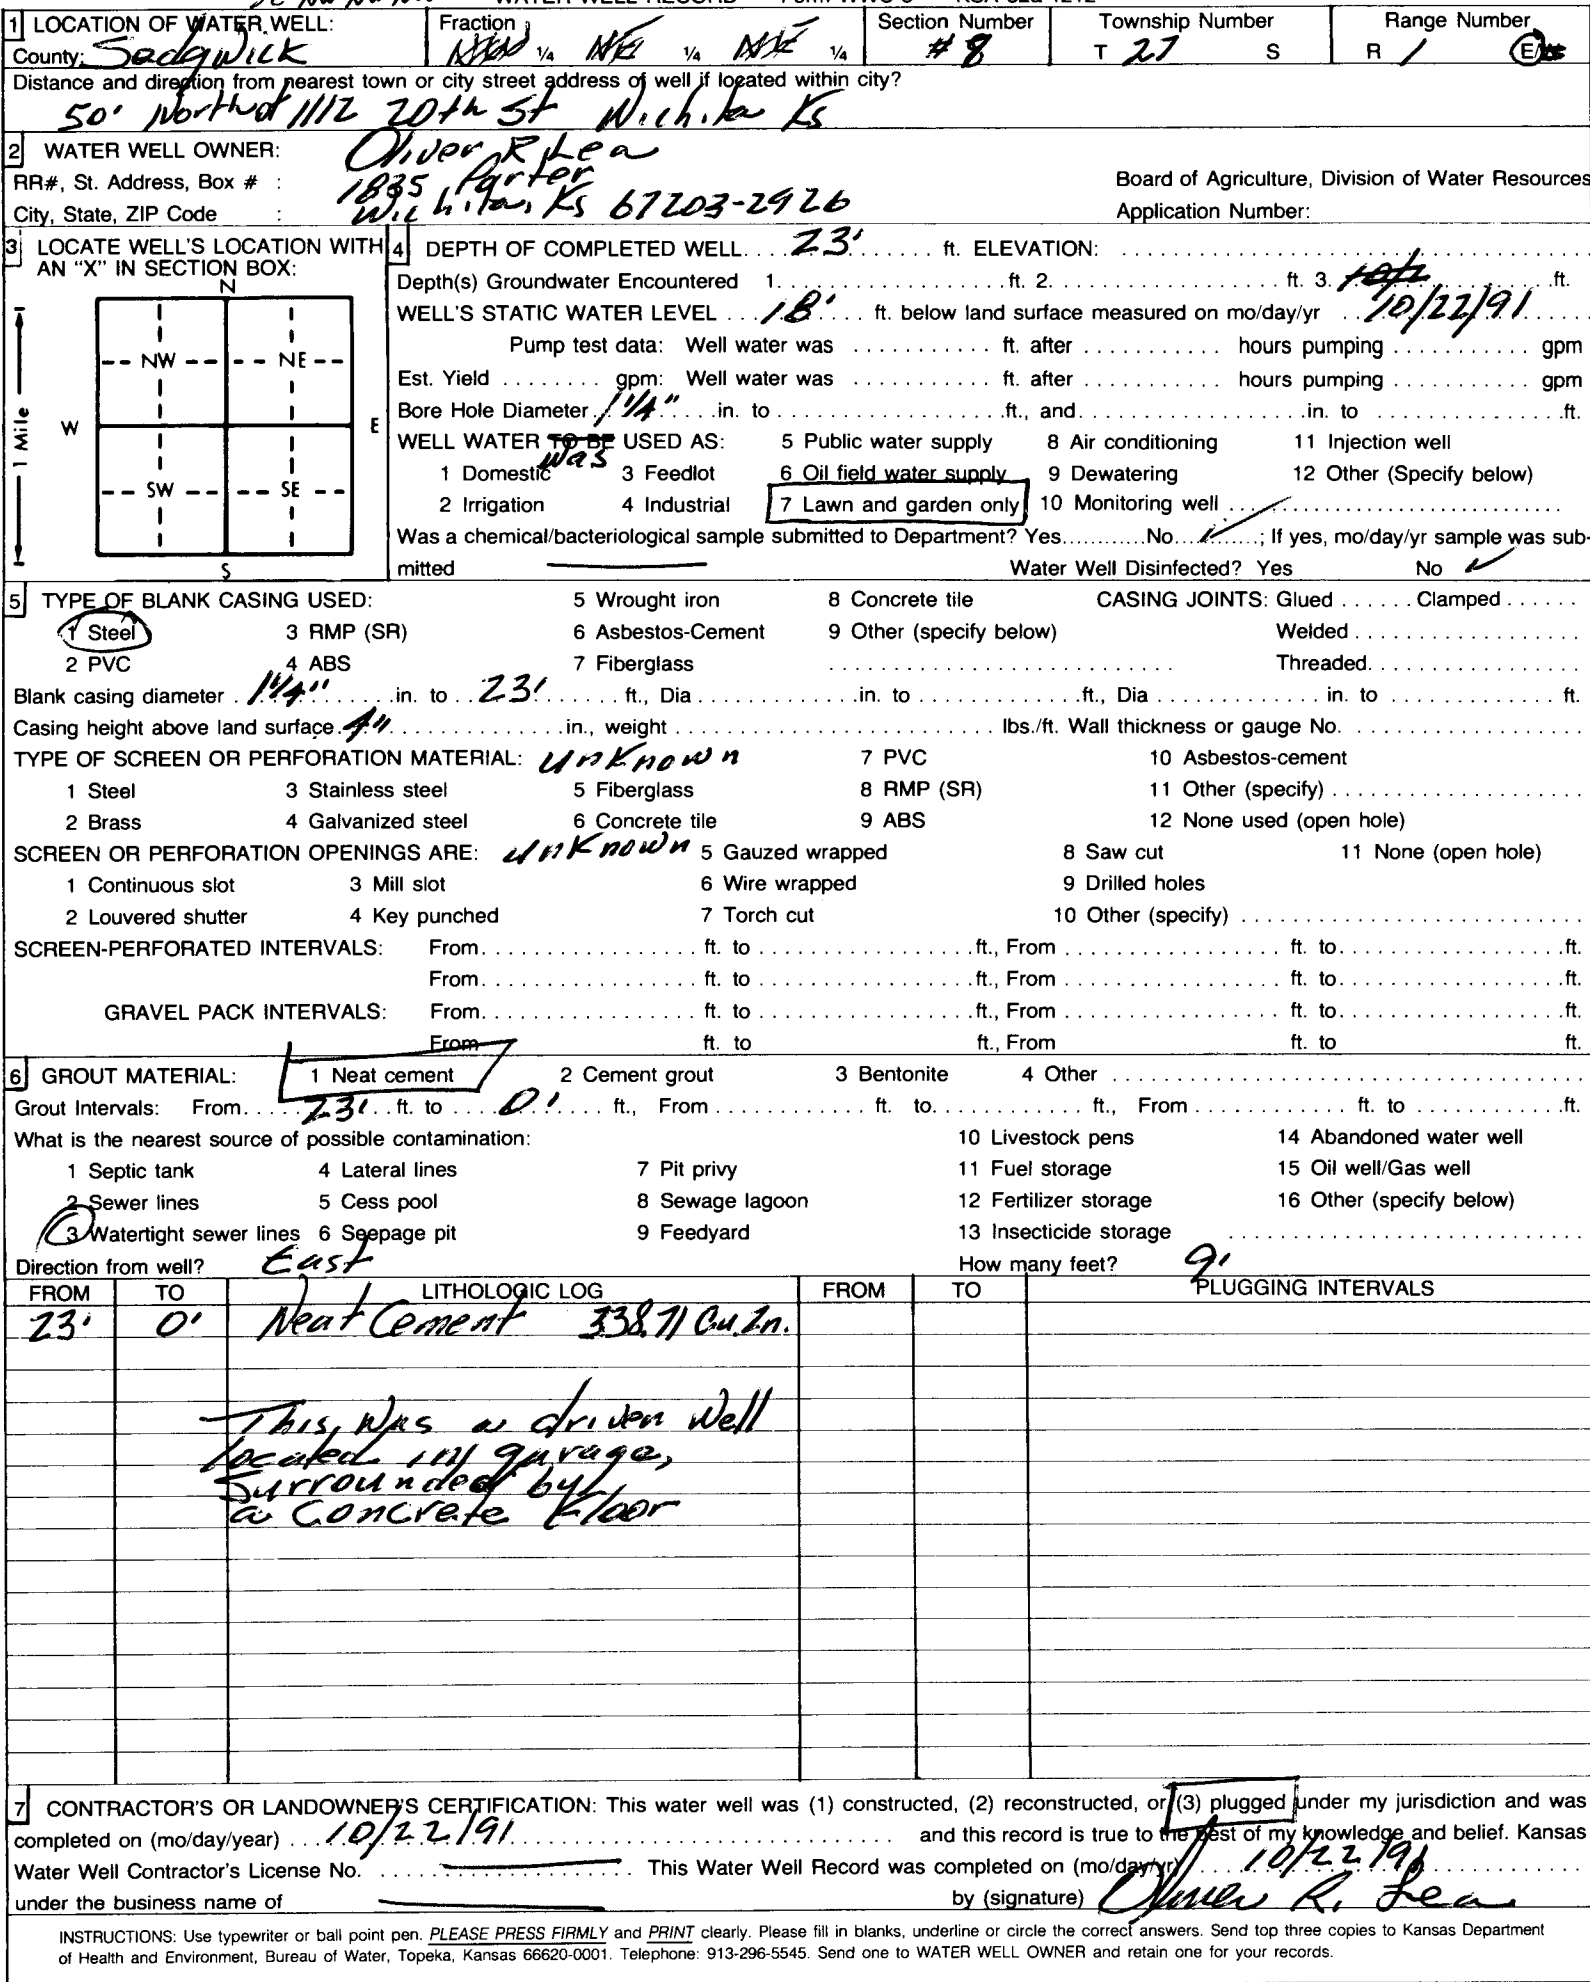 1 LOCATION OF WATER WELL: Fraction Section Number Township Number Range Number
County: Sedgwick ¼ NE ¼ NE ¼ # 8 T 27 S R 1 E/W
Distance and direction from nearest town or city street address of well if located within city?
50' North of 1112 20th St Wichita Ks
2 WATER WELL OWNER: Oliver R Lea
RR#, St. Address, Box # : 1835 Porter Board of Agriculture, Division of Water Resources
City, State, ZIP Code : Wichita, Ks 67203-2926 Application Number:
3 LOCATE WELL'S LOCATION WITH AN "X" IN SECTION BOX:
N
NW NE
W E
SW SE
S
1 Mile
4 DEPTH OF COMPLETED WELL. . . . 23' . . . . ft. ELEVATION: . . . .
Depth(s) Groundwater Encountered 1. . . . . ft. 2. . . . . ft. 3. . . . . ft.
WELL'S STATIC WATER LEVEL . . . 18' . . . ft. below land surface measured on mo/day/yr . . 10/22/91 . . .
Pump test data: Well water was . . . . ft. after . . . . hours pumping . . . . gpm
Est. Yield . . . . gpm: Well water was . . . . ft. after . . . . hours pumping . . . . gpm
Bore Hole Diameter . 1¼" . . . in. to . . . . ft., and . . . . in. to . . . . ft.
WELL WATER TO BE USED AS: 5 Public water supply 8 Air conditioning 11 Injection well
was
1 Domestic 3 Feedlot 6 Oil field water supply 9 Dewatering 12 Other (Specify below)
2 Irrigation 4 Industrial 7 Lawn and garden only 10 Monitoring well . . . .
Was a chemical/bacteriological sample submitted to Department? Yes. . . . No. . ✓ . . ; If yes, mo/day/yr sample was sub-
mitted Water Well Disinfected? Yes No ✓
5 TYPE OF BLANK CASING USED: 5 Wrought iron 8 Concrete tile CASING JOINTS: Glued . . . . Clamped . . . .
1 Steel 3 RMP (SR) 6 Asbestos-Cement 9 Other (specify below) Welded . . . .
2 PVC 4 ABS 7 Fiberglass . . . . Threaded. . . .
Blank casing diameter . 1¼" . . . in. to . . 23' . . . ft., Dia . . . . in. to . . . . ft., Dia . . . . in. to . . . . ft.
Casing height above land surface. 4" . . . in., weight . . . . lbs./ft. Wall thickness or gauge No. . . . .
TYPE OF SCREEN OR PERFORATION MATERIAL: unknown 7 PVC 10 Asbestos-cement
1 Steel 3 Stainless steel 5 Fiberglass 8 RMP (SR) 11 Other (specify) . . . .
2 Brass 4 Galvanized steel 6 Concrete tile 9 ABS 12 None used (open hole)
SCREEN OR PERFORATION OPENINGS ARE: unknown 5 Gauzed wrapped 8 Saw cut 11 None (open hole)
1 Continuous slot 3 Mill slot 6 Wire wrapped 9 Drilled holes
2 Louvered shutter 4 Key punched 7 Torch cut 10 Other (specify) . . . .
SCREEN-PERFORATED INTERVALS: From. . . . ft. to . . . . ft., From . . . . ft. to. . . . ft.
From. . . . ft. to . . . . ft., From . . . . ft. to. . . . ft.
GRAVEL PACK INTERVALS: From. . . . ft. to . . . . ft., From . . . . ft. to. . . . ft.
From ft. to ft., From ft. to ft.
6 GROUT MATERIAL: 1 Neat cement 2 Cement grout 3 Bentonite 4 Other . . . .
Grout Intervals: From. . . 23' . . ft. to . . . 0' . . . ft., From . . . . ft. to. . . . ft., From . . . . ft. to . . . . ft.
What is the nearest source of possible contamination: 10 Livestock pens 14 Abandoned water well
1 Septic tank 4 Lateral lines 7 Pit privy 11 Fuel storage 15 Oil well/Gas well
2 Sewer lines 5 Cess pool 8 Sewage lagoon 12 Fertilizer storage 16 Other (specify below)
3 Watertight sewer lines 6 Seepage pit 9 Feedyard 13 Insecticide storage . . . .
Direction from well? East How many feet? 9'
FROM TO LITHOLOGIC LOG FROM TO PLUGGING INTERVALS
23' 0' Neat Cement 338.71 Cu.In.
This, was a driven well
located in garage,
surrounded by
a Concrete Floor
7 CONTRACTOR'S OR LANDOWNER'S CERTIFICATION: This water well was (1) constructed, (2) reconstructed, or (3) plugged under my jurisdiction and was
completed on (mo/day/year) . . . 10/22/91 . . . . and this record is true to the best of my knowledge and belief. Kansas
Water Well Contractor's License No. . . . . This Water Well Record was completed on (mo/day/yr) . . . 10/22/91 . . .
under the business name of by (signature) Oliver R. Lea
INSTRUCTIONS: Use typewriter or ball point pen. PLEASE PRESS FIRMLY and PRINT clearly. Please fill in blanks, underline or circle the correct answers. Send top three copies to Kansas Department
of Health and Environment, Bureau of Water, Topeka, Kansas 66620-0001. Telephone: 913-296-5545. Send one to WATER WELL OWNER and retain one for your records.